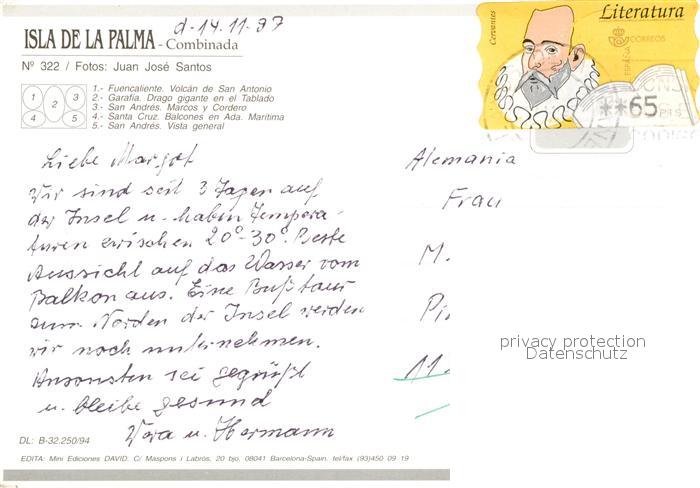 d. 14.11.97
ISLA DE LA PALMA - Combinada
Nº 322 / Fotos: Juan José Santos
1 2 3
4 5
1.- Fuencaliente. Volcán de San Antonio
2.- Garafía. Drago gigante en el Tablado
3.- San Andrés. Marcos y Cordero
4.- Santa Cruz. Balcones en Ada. Marítima
5.- San Andrés. Vista general
Literatura
Cervantes
CORREOS
ESPAÑA
**65 PTS
Liebe Margot
Wir sind seit 3 Tagen auf
der Insel u. habin Tempera-
turen zwischen 20°-30°. Beste
Aussicht auf das Wasser vom
Balkon aus. Eine Bußtour
zum Norden der Insel werden
wir noch unternehmen.
Ansonsten sei gegrüßt
u. bleibe gesund
Vera u. Hermann
Alemania
Frau
M.
Pi
11.
privacy protection
Datenschutz
DL: B-32.250/94
EDITA: Mini Ediciones DAVID. C/ Maspons i Labrós, 20 bjo, 08041 Barcelona-Spain. tel/fax (93)450 09 19